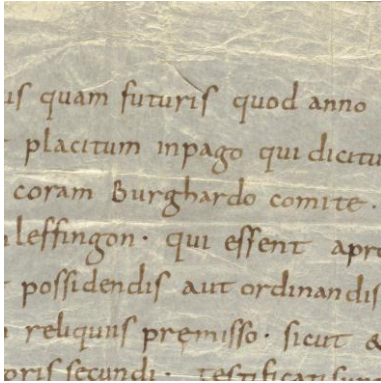 us quam futuris quod anno
placitum inpago qui dicitu
coram Burghardo comite.
leffingon. qui essent apro
possidendis aut ordinandis
reliquiis premisso. sicut &
oris secundi. testificati sunt